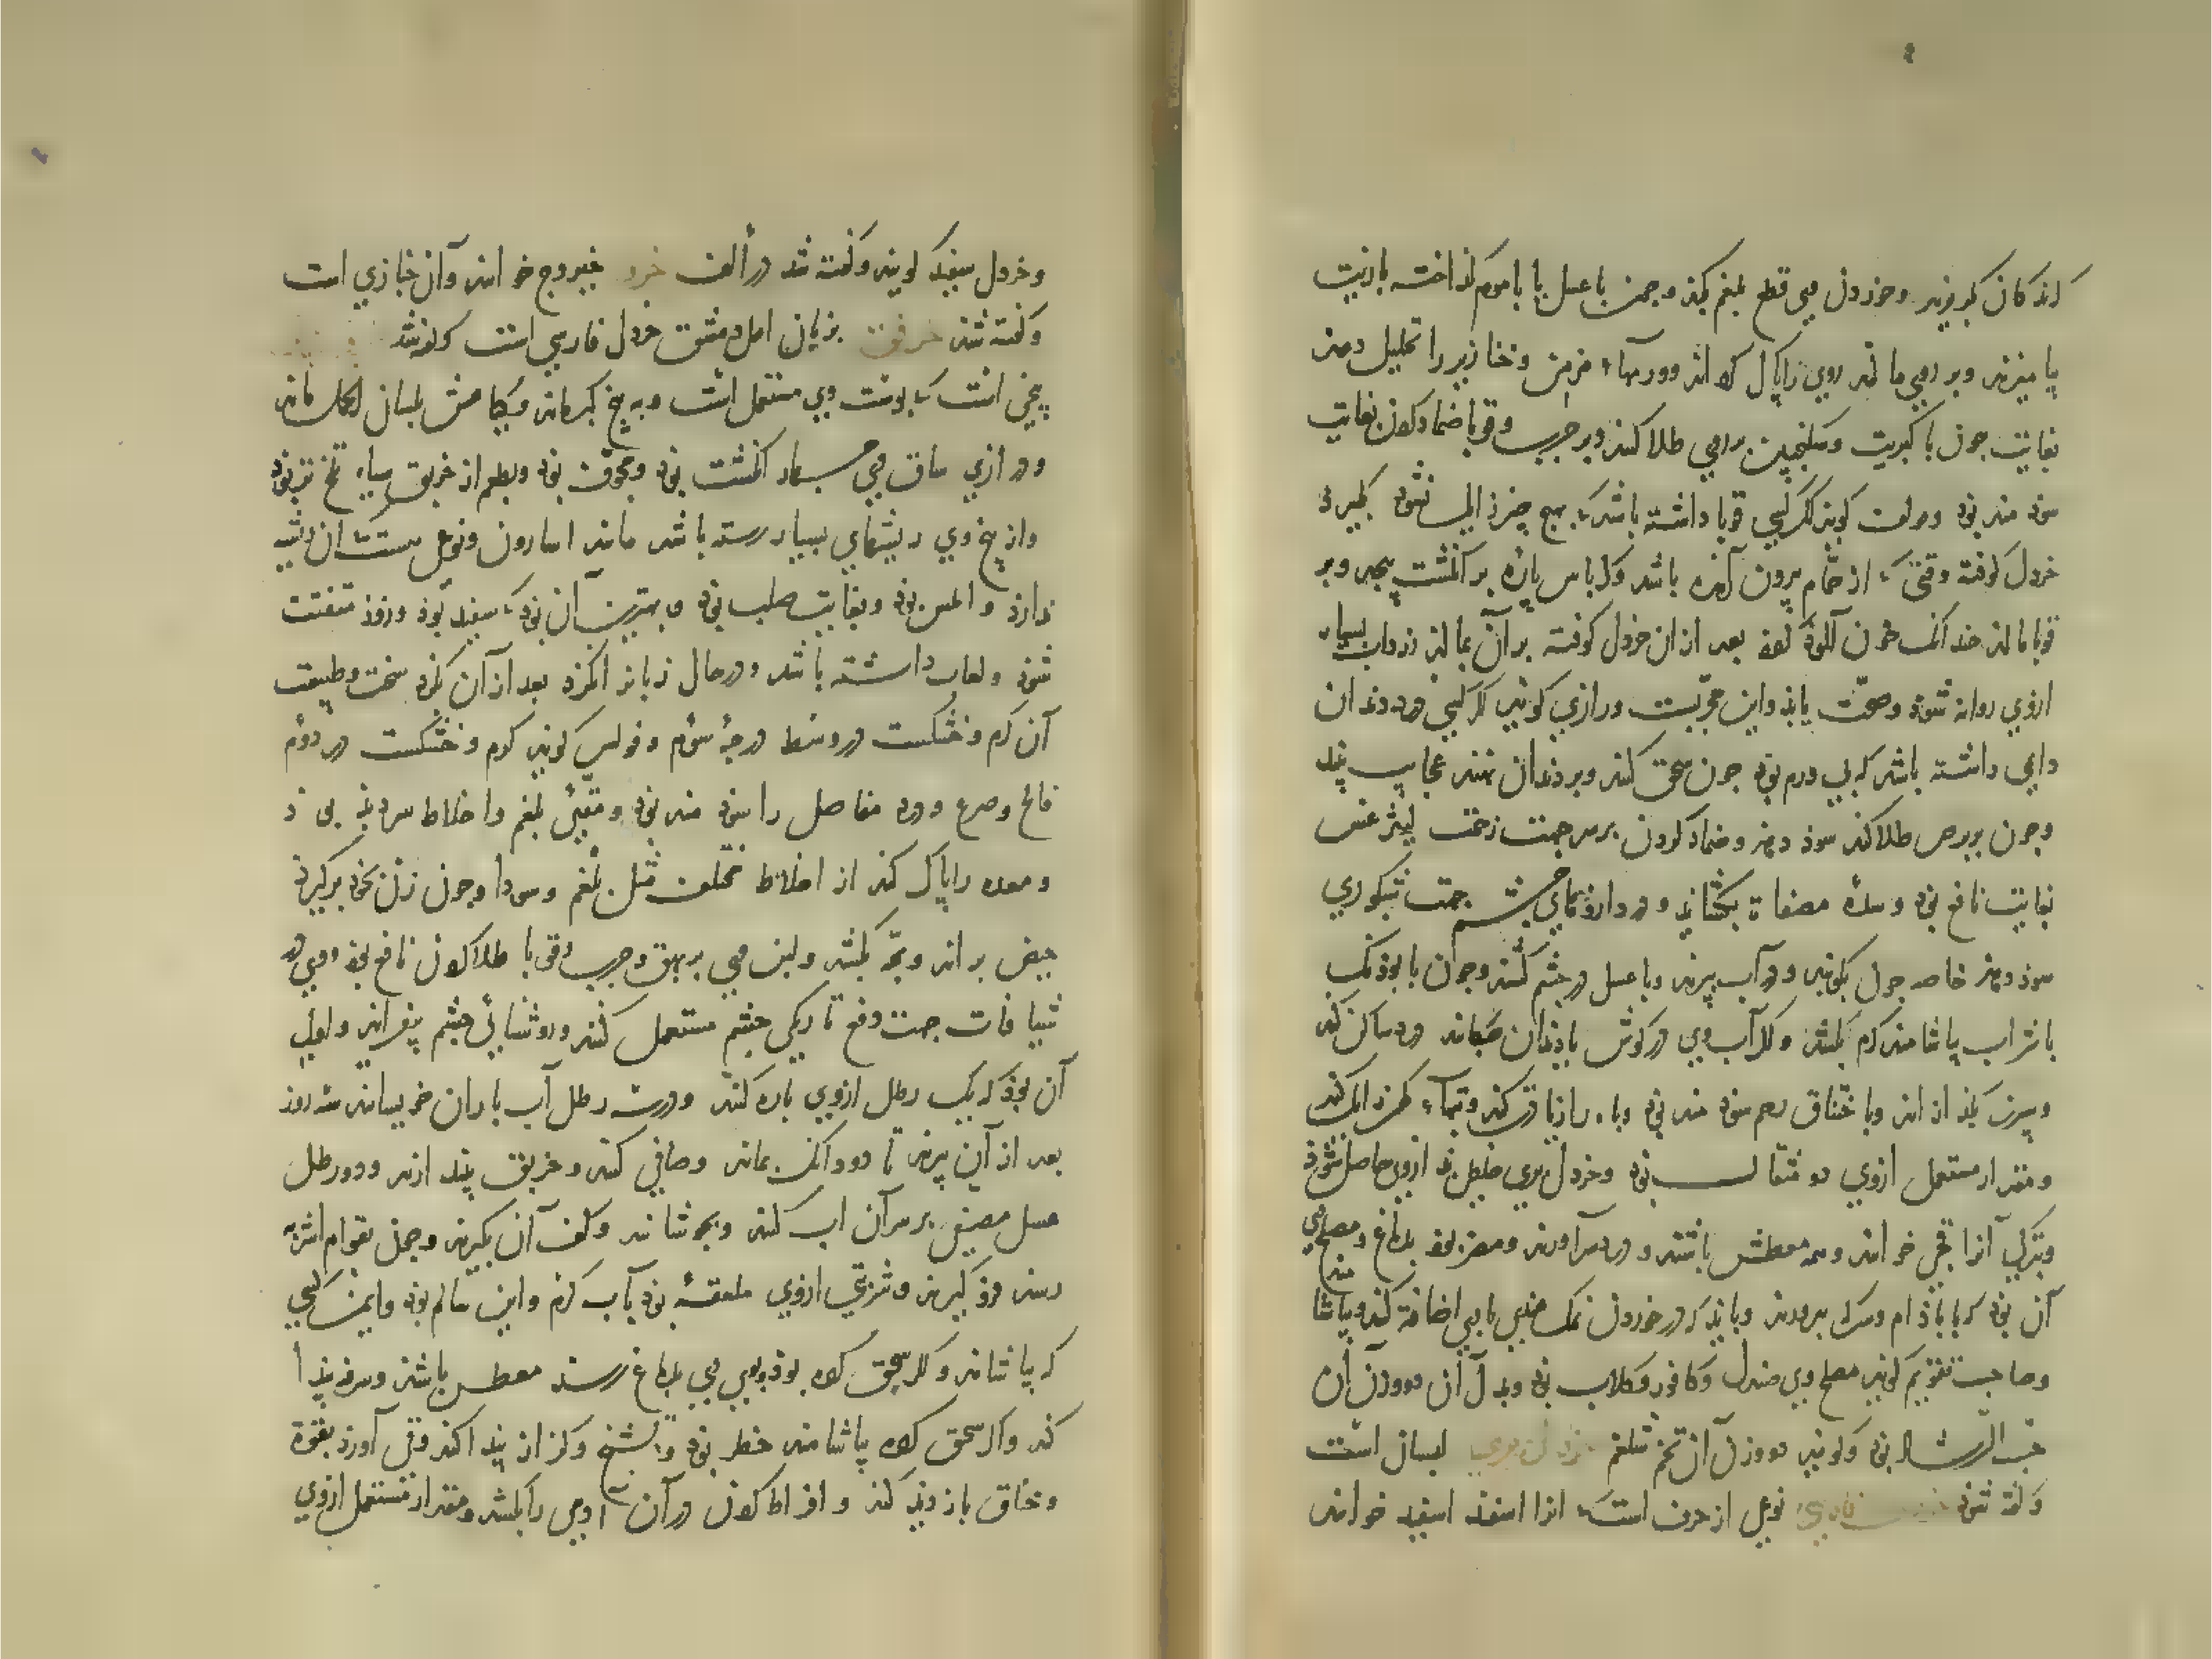 کزندکان بکریزند و خوردن وی قطع بلغم بکند و چون با عسل یا با موم کداخته یا زیت
بیامیزند و بر روی مالند روی را پاک کرداند و ورمهاء مزمن و خنازیر را تحلیل دهد
بغایت چون با کبریت و سکنجبین بر وی طلا کنند و بر جرب و قوبا ضماد کردن بغایت
سودمند بود و مولف کوید اکر کسی قوبا داشته باشد که بهیچ چیز زایل نشود بکیرند
خردل کوفته وقتی که از حمام بیرون آمده باشد و کرباس پاره بر انکشت پیچد و بر
قوبا مالد چندانک خون آلوده کردد بعد از آن خردل کوفته بر آن بمالد زرداب بسیار
ازوی روانه شود و صحت یابد و این مجربست و رازی کوید اکر کسی درد دندان
دایمی داشته باشد که بی ورم بود چون سحق کنند و بر دندان نهند عجایب بیند
و چون بر برص طلا کنند سود دهد و ضماد کردن بر سر جهت زحمت لیثرغس
بغایت نافع بود و سده مصفاة بکشاید و در داروهای چشم جهت شبکوری
سود دهد خاصه چون بکوبند و در آب بپزند و با عسل در چشم کشند و چون با بوزنک
با شراب بیاشامند کرم بکشد و اکر آب وی در کوش یا دندان چکانند درد ساکن کند
و سپرز بکدازاند و با خناق رحم سودمند بود و باه را زیادت کند و تبهاء کهن زایل کند
و مقدار مستعمل ازوی دو مثقال بود و خردل بری خلطی بد ازوی حاصل شود
و بترکی آنرا قجی خوانند و همه معطش باشند و درد سر آورند و مضر بود بدماغ و مصلح وی
آن بود که با بادام و سرکه بپرورند و باید که در خوردن نمک هندی با وی اضافه کنند و بیاشامند
و صاحب تقویم کوید مصلح وی صندل و کافور و کلاب بود و بدل آن دو وزن آن
حب الرشاد بود و کویند دو وزن آن تخم شلغم خردل بری لبسان است
و کفته شود خردل فارسی نوعی از حرف است که آنرا اسفند اسفید خوانند
و خردل سفید کویند و کفته شد در ألف خرد خیروج خوانند و آن خبازی است
و کفته شد خرفق بزبان اهل دمشق خردل فارسی است کفته شد
بیخی است که پوست وی مستعمل است و به بیخ کبر ماند و کیاهش بلسان الحمل ماند
و درازی ساق وی چهار انکشت بود و مجوف بود و بطعم از خربق سیاه تلخ تر بود
و از بیخ وی ریشهای بسیار رسته باشد مانند اسارون و نوعی هست که آن ریشه
ندارد و املس بود و بغایت صلب بود و بهترین آن بود که سفید بود و زود متفتت
شود و لعاب داشته باشد و در حال زبان را نکزد بعد از آن بکزد سخت و طبیعت
آن کرم و خشکست در وسط درجه سوم و فولس کوید کرم و خشکست در دوم
فالج و صرع و درد مفاصل را سودمند بود و مقیئ بلغم و اخلاط سرد بد بود
و معده را پاک کند از اخلاط مختلف مثل بلغم و سودا و چون زن بخود برکیرد
حیض براند و بچه بکشد و لیف وی بر بهق و جرب و قوبا طلا کردن نافع بود و وی در
شیافات جهت دفع تاریکی چشم مستعمل کنند و روشنائی چشم بیفزاید و اولی
آن بود که یک رطل ازوی پاره کنند و در سه رطل آب باران خیسانند سه روز
بعد از آن بپزند تا دو دانک بماند و صافی کنند و خربق بیندازند و دو رطل
عسل مصفی بر سر آن اب کنند و بجوشانند و کف آن بکیرند و چون بقوام اشربه
رسد فرو کیرند و شربتی ازوی ملعقه بود بآب کرم و این سالم بود و ایمن کسی
که بیاشامد و اکر سحق کرده بود بوی وی بدماغ رسد معطس باشد و سرفه پیدا
کند و اکر سحق کرده بیاشامند خطر بود و تشنج و کزاز پیدا کند و قی آورد بقوة
و خناق بازدید کند و افراط کردن در آن آدمی را بکشد و مقدار مستعمل ازوی